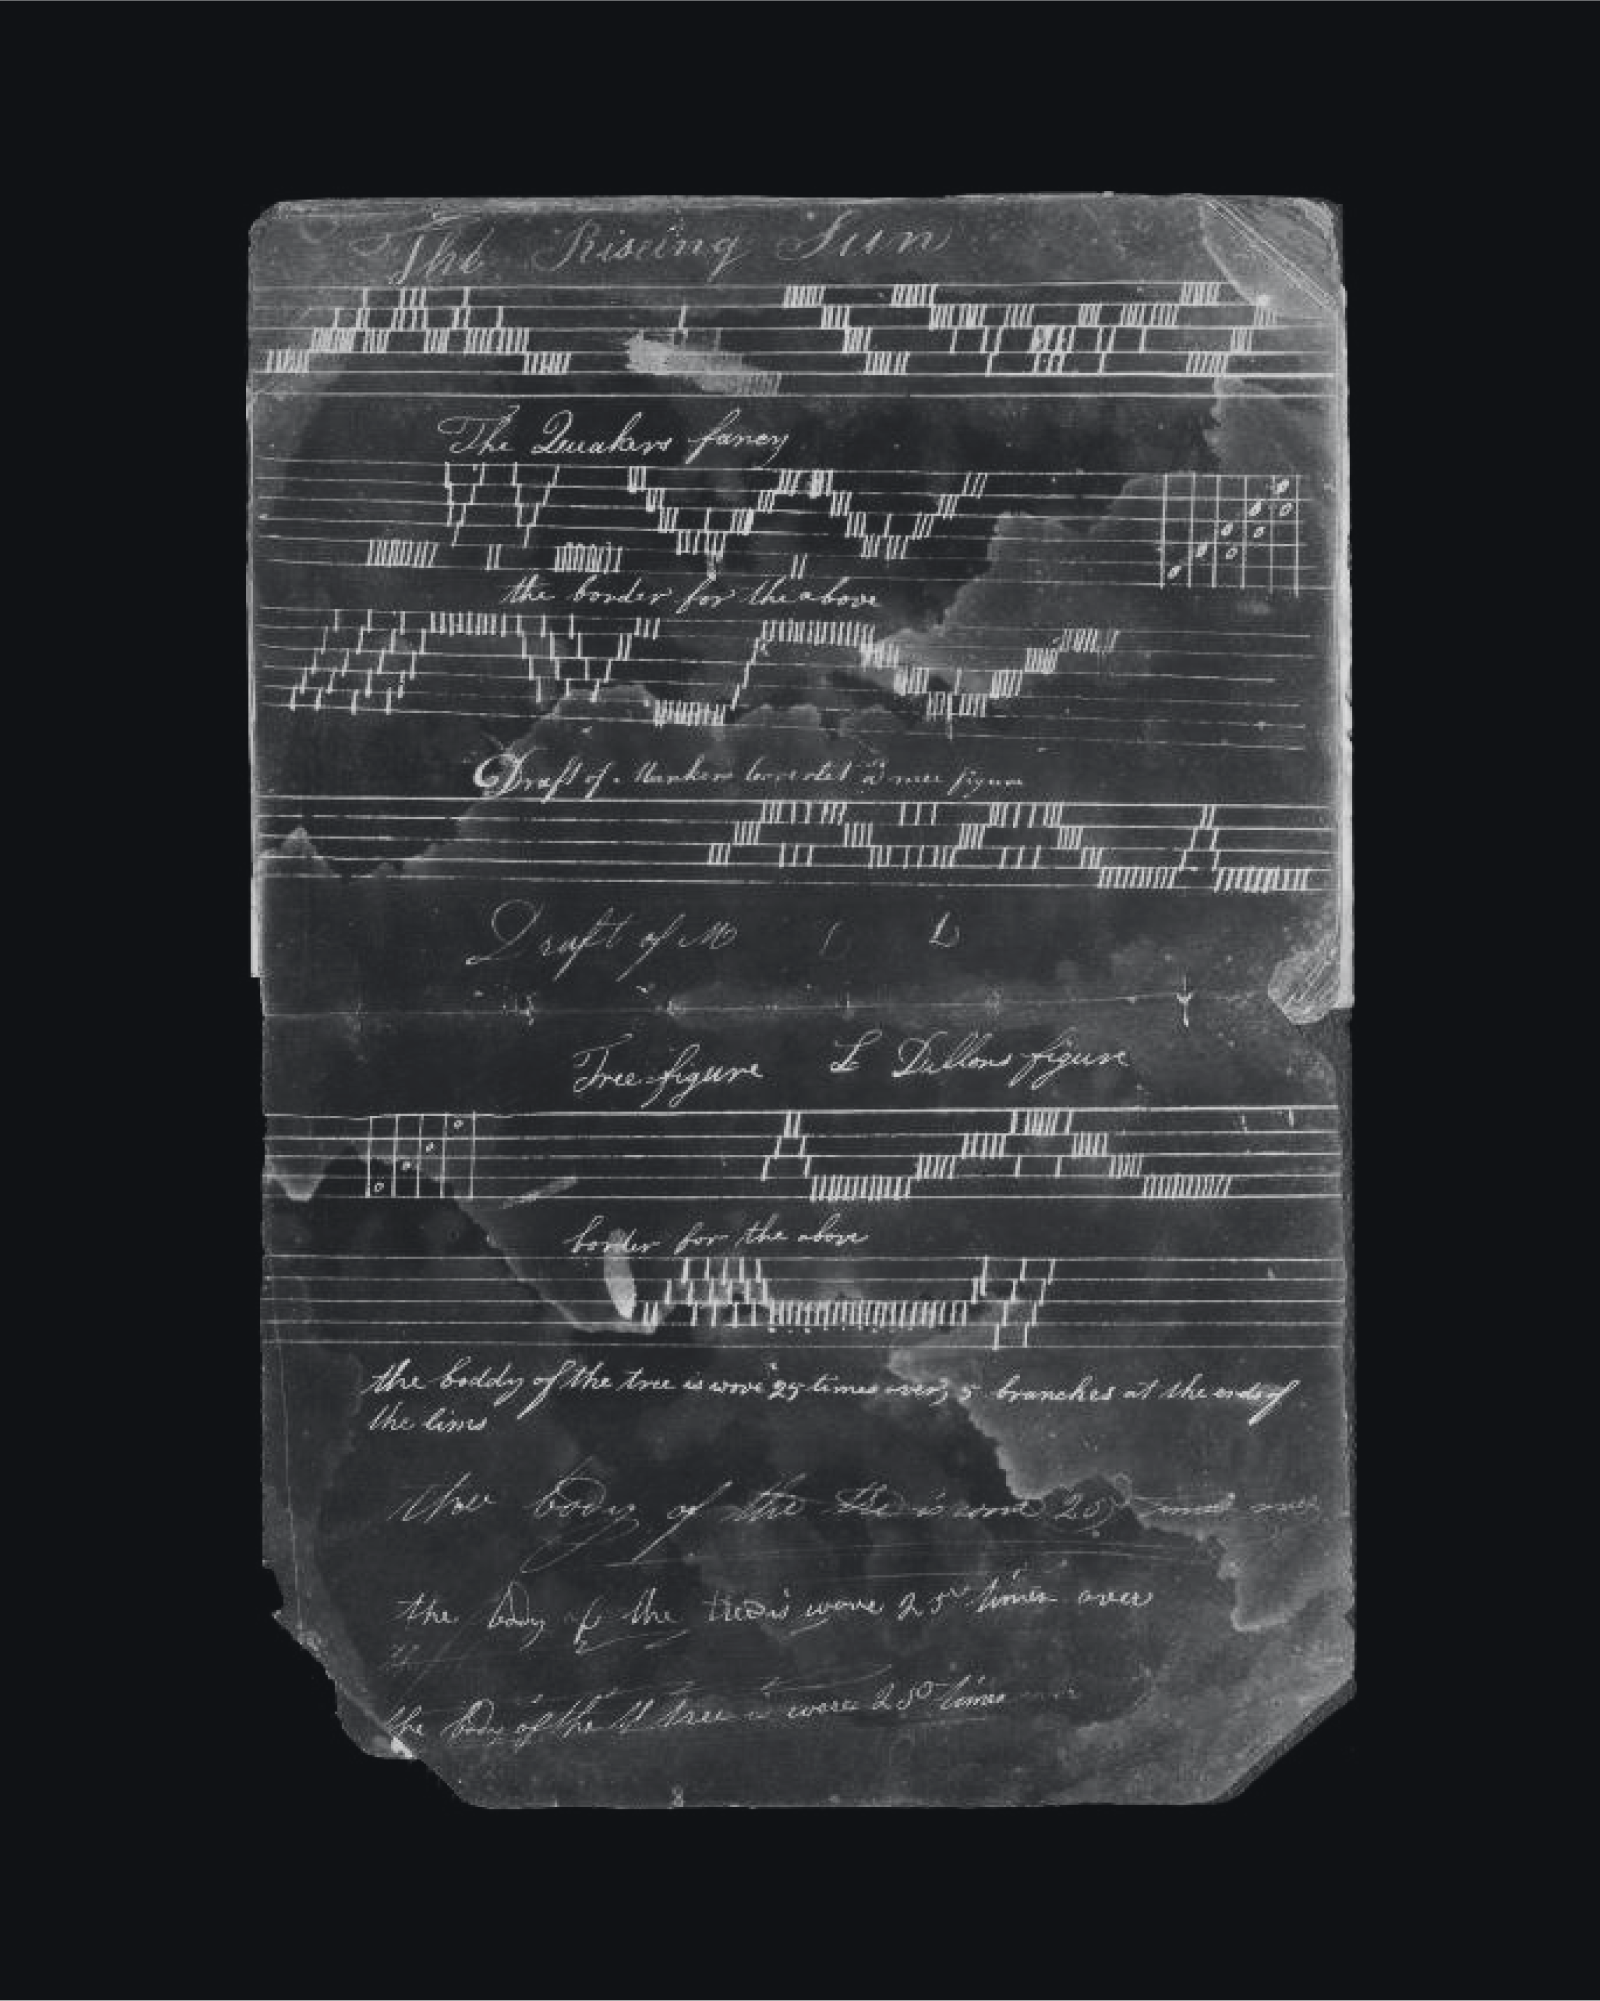 The Riseing Sun
The Quakers fancy
the border for the above
Draft of figure
Draft of M L
Tree figure L Dullons figure
border for the above
the boddy of the tree is wove 25 times over, 5 branches at the ends of
the lims
body of the is wove 25
the body of the tree is wove 25 times over
the body of the tree is wove 25 times over
8